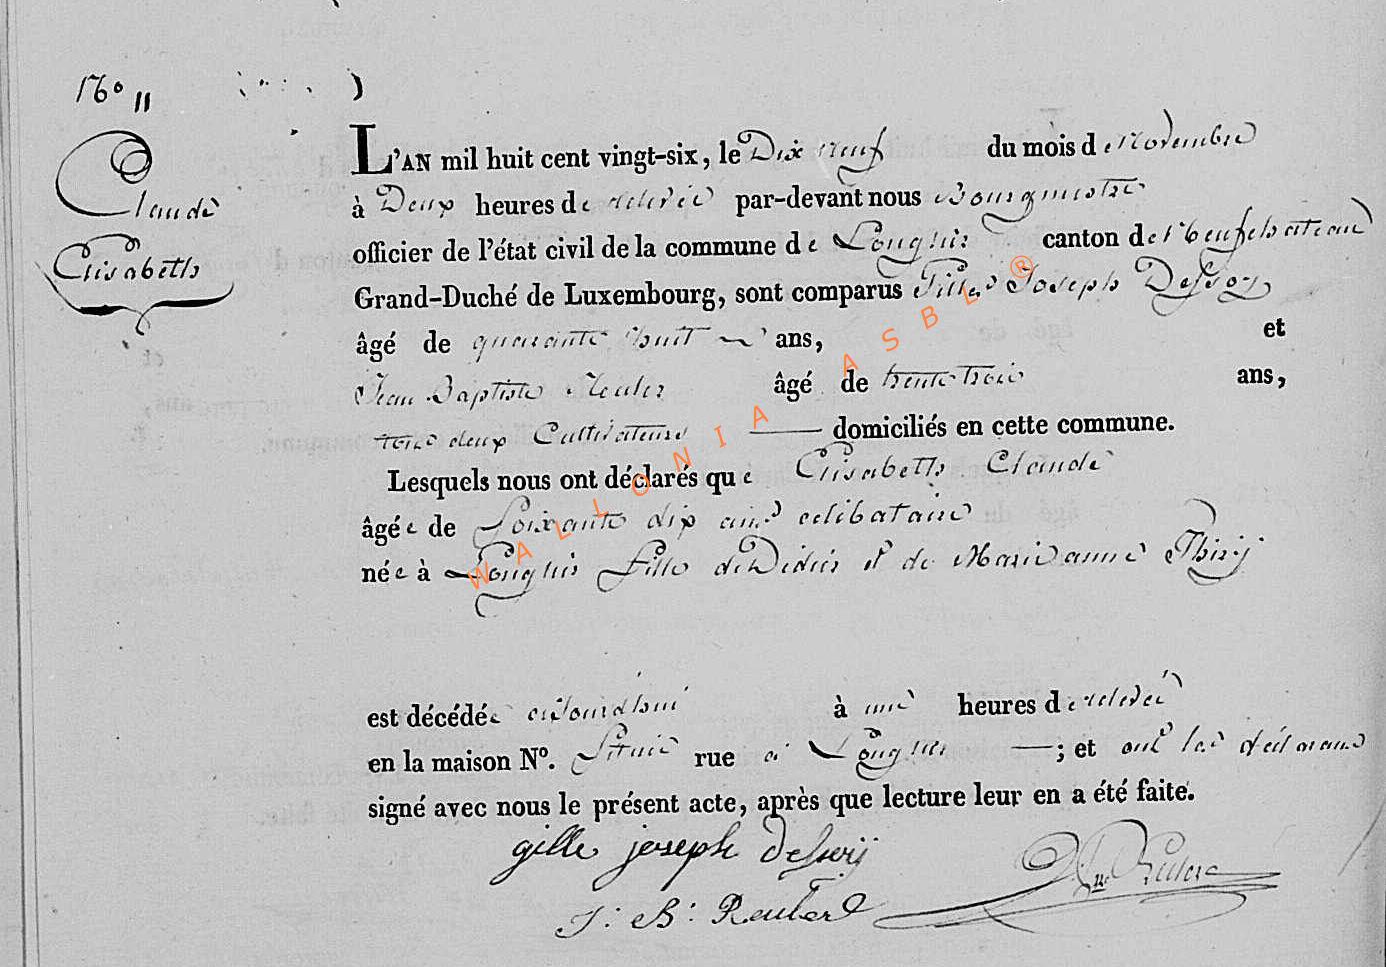 N° 11
Claude
Elisabeth
L'AN mil huit cent vingt-six, le Dix neuf du mois de Novembre
à Deux heures de relevée par-devant nous Bourgmestre
officier de l'état civil de la commune de Longlier canton de Neufchateau
Grand-Duché de Luxembourg, sont comparus Gilles Joseph Dessoy
âgé de quarante huit ans, et
Jean Baptiste âgé de trente trois ans,
tous deux Cultivateurs domiciliés en cette commune.
Lesquels nous ont déclarés que Elisabeth Claude
âgée de Soixante dix ans celibataire
née à Longlier fille de Didier et de Marie anne Thiry
est décédée aujourdhui à une heures de relevée
en la maison N°. Située rue à Longlier ; et ont les déclarans
signé avec nous le présent acte, après que lecture leur en a été faite.
gille joseph
J: B:
WALLONIA ASBL ®